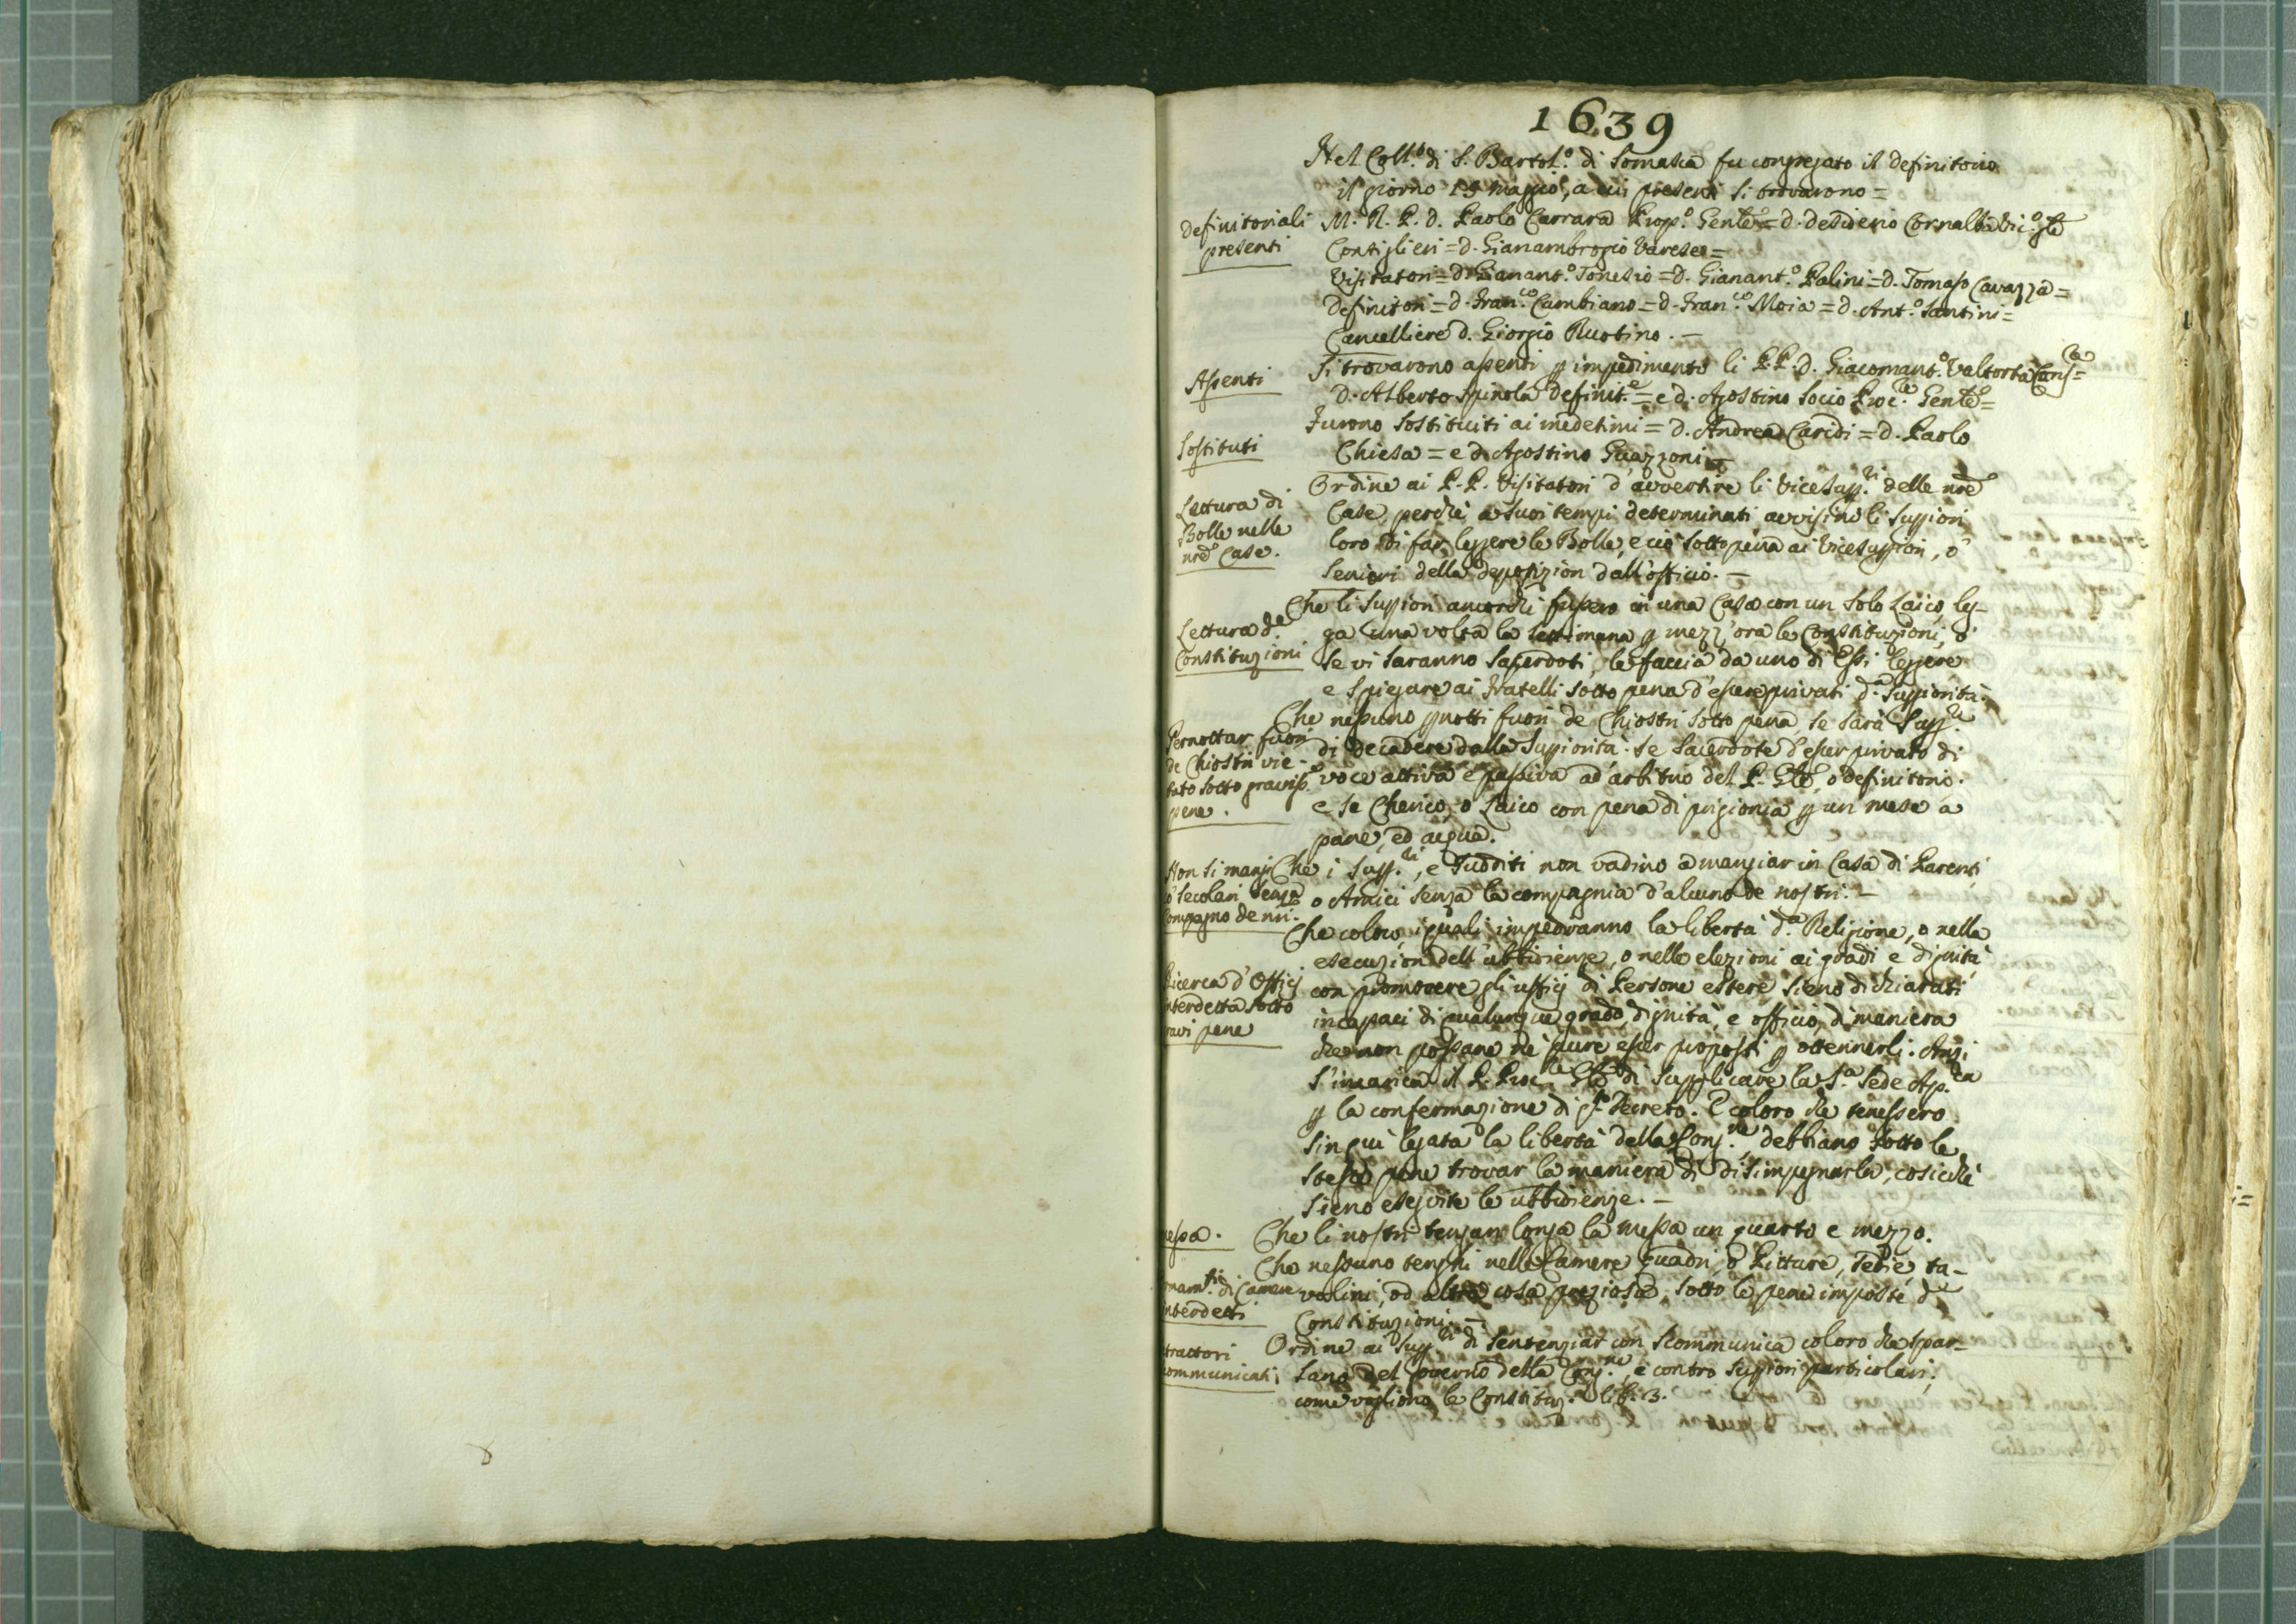 1639
Nel Coll.o di S. Bartol.o di Somasca fu congregato il definitorio
il giorno 19 maggio, a cui presenti si trovarono =
definitoriali
presenti
M. R. P. d. Paolo Carrara Prep.o Genle = d. desiderio Cornalba Vic.o Gle
Consiglieri = d. Gianambrogio Varese =
Visitatori = d. Gianant.o Tonesio = d. Gianant.o Palini = d. Tomaso Cavazza =
definitori = d. Fran.co Cambiano = d. Fran.co Moia = d. Ant.o Santini =
Cancelliere d. Giorgio Rustino. —
Assenti
Si trovarono assenti p impedimento li P.P. d. Giacomant.o Valtorta Cons.re =
d. Alberto Spinola definit.e = e d. Agostino Socio Proc.re Genle =
Sostituti
Furono sostituiti ai medesimi = d. Andrea Caridi = d. Paolo
Chiesa = e d. Agostino Guazzoni —
Lettura di
Bolle nelle
nre Case.
Ordine ai P.P. Visitatori d'avvertire li ViceSupp.ri delle nre
Case, perchè a suoi tempi determinati avvisino li Suppiori
loro di far leggere le Bolle, e ciò sotto pena ai ViceSuppiori, o
Seniori della deposizion dall'officio. —
Lettura d.e
Constituzioni
Che li Suppiori ancorchè fussero in una Casa con un solo Laico, leg-
ga una volta la settimana p mezz'ora le Constituzioni, o
se vi saranno Sacerdoti, le faccia da uno di Essi leggere
e spiegare ai Fratelli sotto pena d'essere privati d.a Suppiorità.
Pernottar fuori
de Chiostri vie-
tato sotto graviss.e
pene.
Che nessuno pnotti fuori de Chiostri sotto pena se sarà Supp.re
di decadere dalla Suppiorità. se Sacerdote d'esser privato di
voce attiva e passiva ad arbitrio del P. Gle, o definitorio.
e se Cherico, o Laico con pena di prigionia p un mese a
pane, ed acqua.
Non si mangi
o' Secolari senza
Compagno de nri.
Che i Supp.ri, e Sudditi non vadino a mangiar in Casa di Parenti
o Amici senza la compagnia d'alcuno de nostri. —
Ricerca d'Officj
interdetta sotto
ravi pene
Che coloro, i quali impediranno la libertà d.a Religione, o nella
esecuzion dell'ubbidienze, o nelle elezioni ai gradi e dignità
con promovere gli ufficj di Persone estere sieno dichiarati
incapaci di qualunque grado, dignità, e officio, di maniera
che non possano nè pure esser proposti p ottennerli. Anzi
s'incarica il P. Proc.re Gle di supplicare la S.a Sede Ap.ca
p la confermazione di qto Decreto. E coloro che tenessero
sin qui legata la libertà della Cong.ne debbiano sotto le
stesse pene trovar la maniera di disimpegnarla, cosicchè
sieno eseguite le ubbidienze. —
messa.
Che li nostri tengan longa la messa un quarto e mezzo.
rnam.ti di Camere
interdetti
Che nessuno tenghi nelle Camere quadri, o Pitture, Sedie, ta-
volini, od altra cosa preziosa, sotto le pene imposte d.e
Constituzioni. —
trattori
communicati
Ordine ai Supp.ri di sentenziar con scommunica coloro che spar-
lano del governo della Cong.ne, e contro Suppiori particolari,
come vogliono le Constituz. lib. 3.